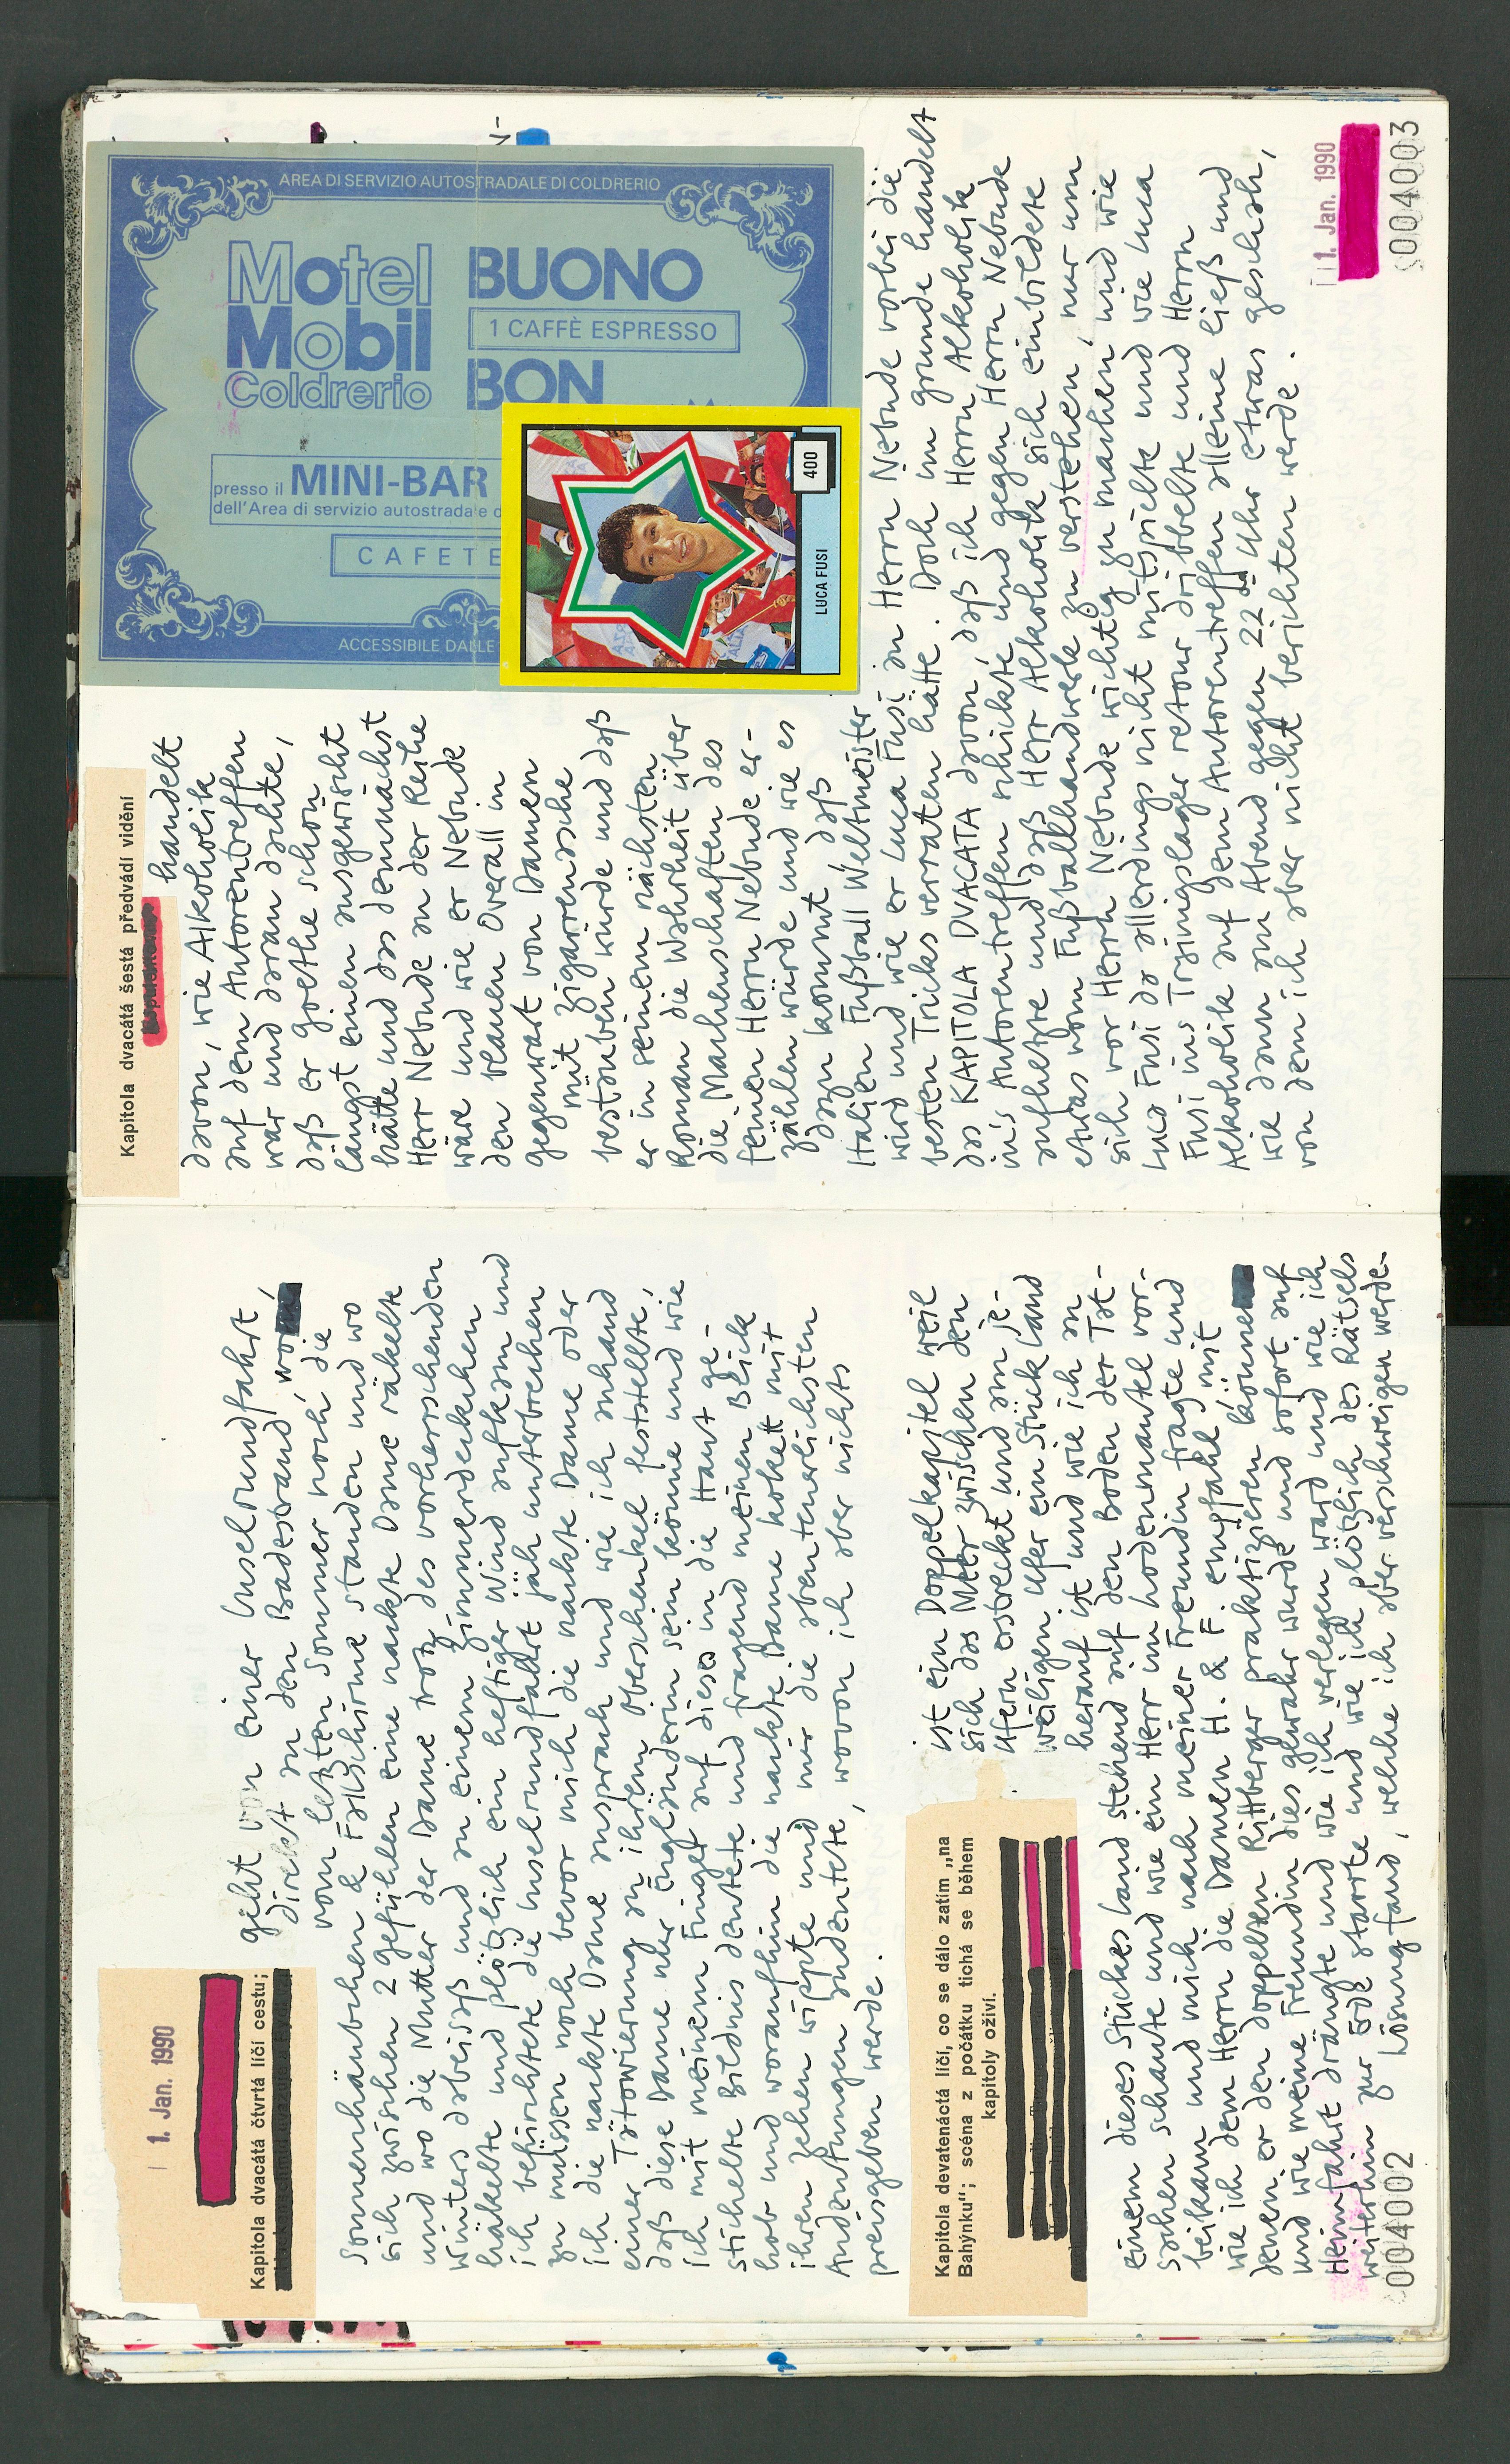 1. Jan. 1990
Kapitola dvacátá čtvrtá líčí cestu;
geht von einer Inselrundfahrt,
direkt an den Badestrand, wo
vom letzten Sommer noch die
Sonnenhäubchen & Fallschirme standen und wo
sich zwischen 2 gefühlen eine nackte Dame räkelte
und wo die Mutter der Dame trotz des vorherrschenden
Winters dabeisaß und an einem Zimmerdeckchen
häkelte und plötzlich ein heftiger Wind aufkam und
ich befürchtete die Inselrundfahrt jäh unterbrechen
zu müssen noch bevor mich die nackte Dame oder
ich die nackte Dame ansprach und wie ich anhand
einer Tätowierung an ihrem Oberschenkel feststellte,
daß diese Dame nur Engländerin sein könne und wie
ich mit meinem Finger auf dieses in die Haut ge-
stichelte Bildnis deutete und fragend meinen Blick
hob und woraufhin die nackte Dame kokett mit
ihren Zehen wippte und mir die abenteuerlichsten
Andeutungen andeutete, wovon ich aber nichts
preisgeben werde.
Kapitola devatenáctá líčí, co se dálo zatím „na
Bahýnku“; scéna z počátku tichá se během
kapitoly oživí.
ist ein Doppelkapitel weil
sich das Meer zwischen den
Ufern erstreckt und am je-
weiligen Ufer ein Stück Land
herauf ist und wie ich an
einem dieses Stückes Land stehend auf den Boden der Tat-
sachen schaute und wie ein Herr im Lodenmantel vor-
beikam und mich nach meiner Freundin fragte und
wie ich dem Herrn die Damen H. & F. empfahl, mit
denen er den doppelten Rittberger praktizieren könne
und wie meine Freundin dies gewahr wurde und sofort auf
Heimfahrt drängte und wie ich verlegen ward und wie ich
weiterhin zur Erde starrte und wie ich plötzlich des Rätsels
Lösung fand, welche ich aber verschweigen werde.
004002
Kapitola dvacátá šestá předvádí vidění
handelt
davon, wie Alkoholik
auf dem Autorentreffen
war und daran dachte,
daß er Goethe schon
längst einen ausgewischt
hätte und das demnächst
Herr Nebude an der Reihe
wäre und wie er Nebude
den blauen Overall in
gegenwart von Damen
mit Zigarrenasche
bestauben würde und daß
er in seinem nächsten
Roman die Wahrheit über
die Machenschaften des
feinen Herrn Nebude er-
zählen würde und wie es
dazu kommt daß
Italien Fußball Weltmeister
wird und wie er Luca Fusi an Herrn Nebude vorbei die
besten Tricks verraten hätte. Doch im grunde handelt
das KAPITOLA DVACATA davon, daß ich Herrn Alkoholik
in's Autorentreffen schickte und gegen Herrn Nebude
aufhetzte und daß Herr Alkoholik sich einbildete
etwas vom Fußballhandwerk zu verstehen, nur um
sich vor Herrn Nebude wichtig zu machen, und wie
Luca Fusi da allerdings nicht mitspielte und wie Luca
Fusi ins Trainingslager retour dribbelte und Herrn
Alkoholik auf dem Autorentreffen alleine ließ und
wie dann am Abend gegen 22 Uhr etwas geschah,
von dem ich aber nicht berichten werde.
AREA DI SERVIZIO AUTOSTRADALE DI COLDRERIO
Motel
Mobil
Coldrerio
BUONO
1 CAFFÈ ESPRESSO
BON
presso il MINI-BAR
dell'Area di servizio autostradale
CAFETE
ACCESSIBILE DALLE
400
LUCA FUSI
1. Jan. 1990
004003